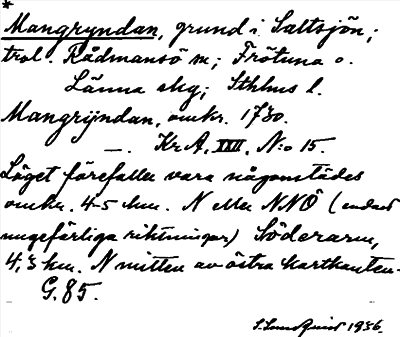 *
Mangryndan, grund i Saltsjön;
trol. Rådmansö sn; Frötuna o.
Länna skg; Sthlms l.
Mangrÿndan, omkr. 1730.
—. Kr A, XXIII, N:o 15.
Läget förefaller vara någonstädes
omkr. 4-5 km. N eller NNÖ (endast
ungefärliga riktningar) Söderarm,
4,3 km. N mitten av östra kartkanten.
G. 85.
S. Lundquist 1936.